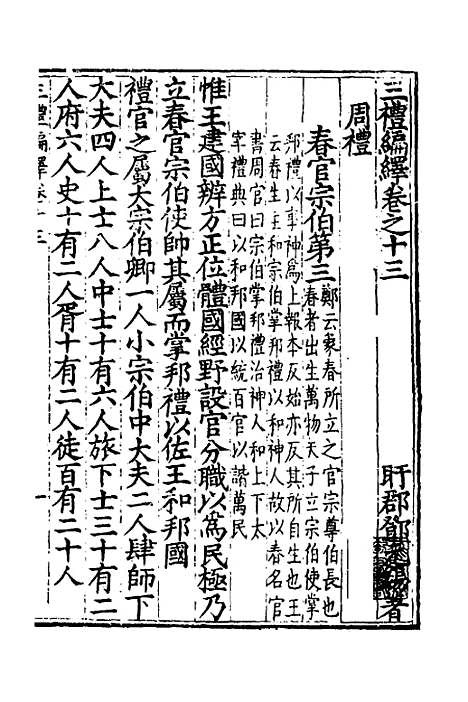 三禮編繹卷之十三
盱郡鄧元錫著
周禮
春官宗伯第三鄭云象春所立之官宗尊伯長也
春者出生萬物天子立宗伯使掌
邦禮以事神為上報本反始亦反其所自生也王
云春生主和宗伯掌邦禮以和神人故以春名官
書周官曰宗伯掌邦禮治神人和上下太
宰禮典曰以和邦國以統百官以諧萬民
惟王建國辨方正位體國經野設官分職以為民極乃
立春官宗伯使帥其屬而掌邦禮以佐王和邦國
禮官之屬大宗伯卿一人小宗伯中大夫二人肆師下
大夫四人上士八人中士十有六人旅下士三十有二
人府六人史十有二人胥十有二人徒百有二十人
三禮編繹卷十三
一